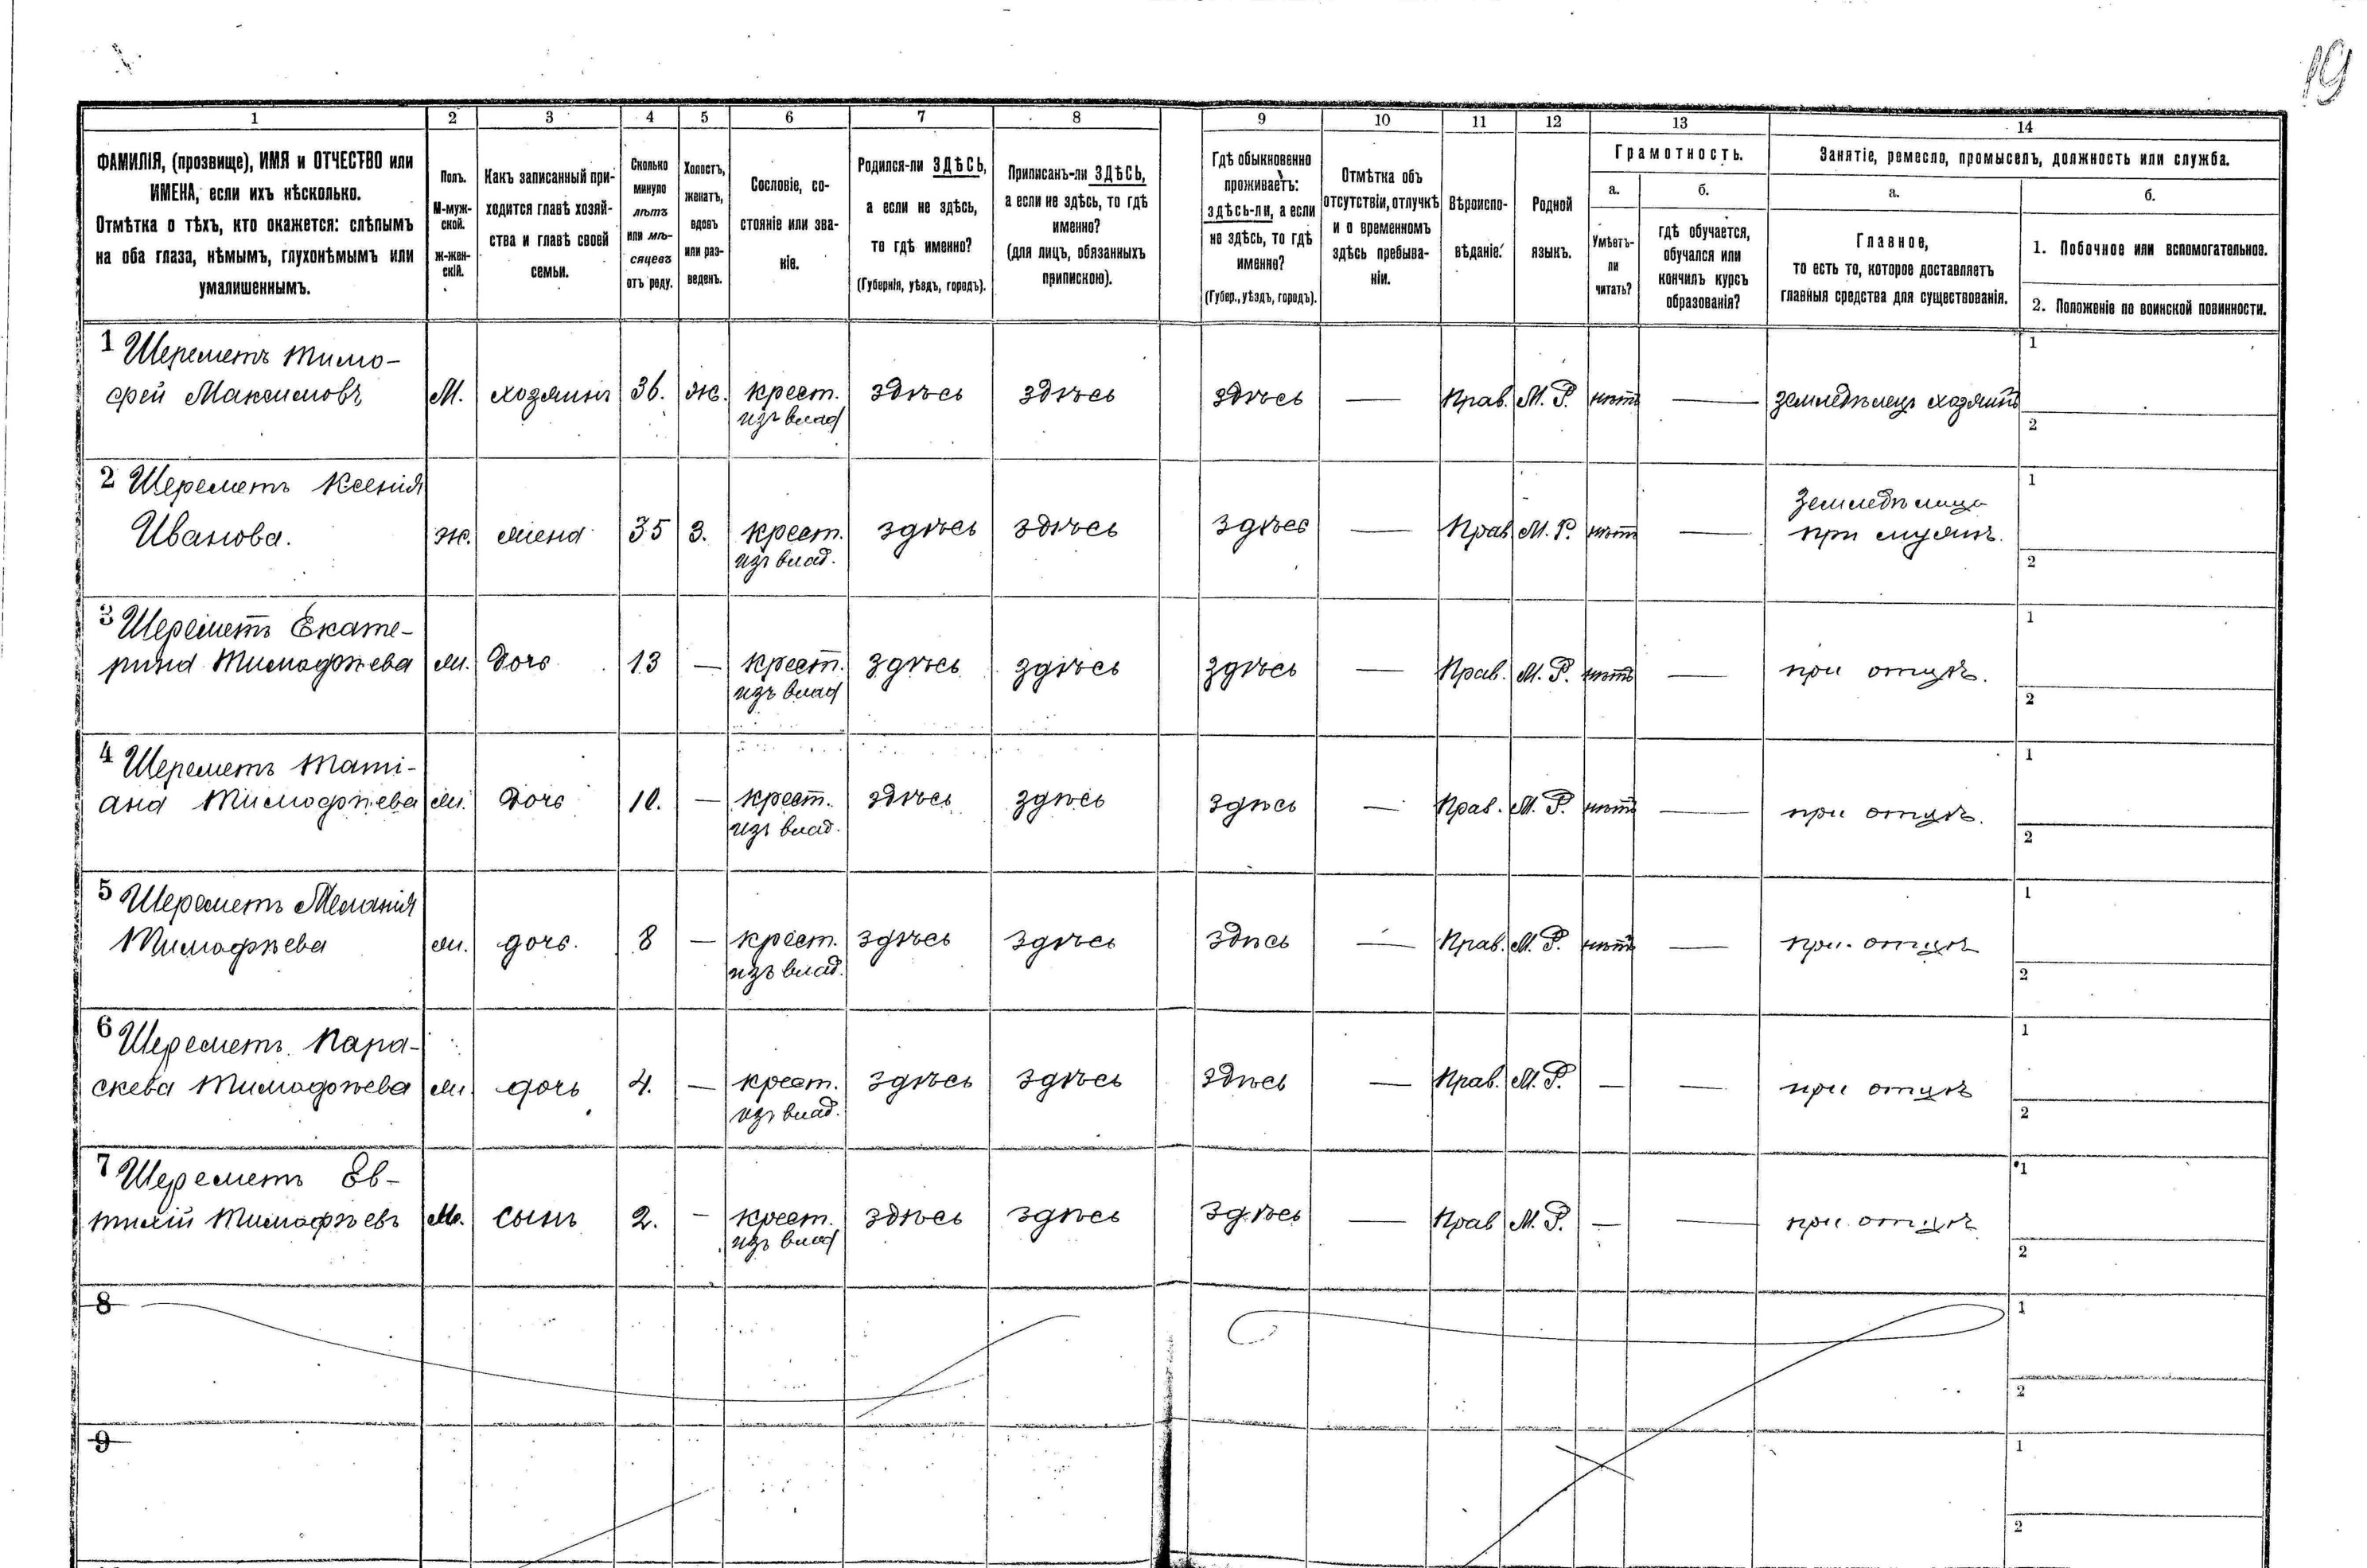 19
1 2 3 4 5 6 7 8 9 10 11 12 13 14
ФАМИЛІЯ, (прозвище), ИМЯ и ОТЧЕСТВО или
ИМЕНА, если ихъ нѣсколько.
Отмѣтка о тѣхъ, кто окажется: слѣпымъ
на оба глаза, нѣмымъ, глухонѣмымъ или
умалишеннымъ.
Полъ.
М-муж-
ской.
ж-жен-
скій.
Какъ записанный при-
ходится главѣ хозяй-
ства и главѣ своей
семьи.
Сколько
минуло
лѣтъ
или мѣ-
сяцевъ
отъ роду.
Холостъ,
женатъ,
вдовъ
или раз-
веденъ.
Сословіе, со-
стояніе или зва-
ніе.
Родился-ли ЗДѢСЬ,
а если не здѣсь,
то гдѣ именно?
(Губернія, уѣздъ, городъ).
Приписанъ-ли ЗДѢСЬ,
а если не здѣсь, то гдѣ
именно?
(для лицъ, обязанныхъ
припискою).
Гдѣ обыкновенно
проживаетъ:
здѣсь-ли, а если
не здѣсь, то гдѣ
именно?
(Губер., уѣздъ, городъ).
Отмѣтка объ
отсутствіи, отлучкѣ
и о временномъ
здѣсь пребыва-
ніи.
Вѣроиспо-
вѣданіе.
Родной
языкъ.
Грамотность.
а.
Умѣетъ-
ли
читать?
б.
гдѣ обучается,
обучался или
кончилъ курсъ
образованія?
Занятіе, ремесло, промыселъ, должность или служба.
а.
Главное,
то есть то, которое доставляетъ
главныя средства для существованія.
б.
1. Побочное или вспомогательное.
2. Положеніе по воинской повинности.
1 Шереметъ Тимо-
фей Максимовъ М. хозяинъ 36. ж. крест. здѣсь здѣсь здѣсь — Прав. М. Р. нѣтъ — земледѣлецъ хозяинъ
изъ влад
1
2
2 Шереметъ Ксенія
Иванова. ж. жена 35 З. крест. здѣсь здѣсь здѣсь — Прав М. Р. нѣтъ — Земледѣлица
изъ влад. при мужѣ.
1
2
3 Шереметъ Екате-
рина Тимофѣева ж. дочь 13 — крест. здѣсь здѣсь здѣсь — Прав. М. Р. нѣтъ — при отцѣ.
изъ влад
1
2
4 Шереметъ Таті-
ана Тимофѣева ж. дочь 10. — крест. здѣсь здѣсь здѣсь — Прав. М. Р. нѣтъ — при отцѣ.
изъ влад.
1
2
5 Шереметъ Меланія
Тимофѣева ж. дочь. 8 — крест. здѣсь здѣсь здѣсь — Прав. М. Р. нѣтъ — при отцѣ
изъ влад.
1
2
6 Шереметъ Пара-
скева Тимофѣева ж. дочь 4. — крест. здѣсь здѣсь здѣсь — Прав. М. Р. — — при отцѣ
изъ влад.
1
2
7 Шереметъ Ев-
тихій Тимофѣевъ М. сынъ 2. — крест. здѣсь здѣсь здѣсь — Прав М. Р. — — при отцѣ
изъ влад
1
2
8
1
2
9
1
2